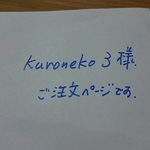 kuroneko 3 様.
ご注文ページです.